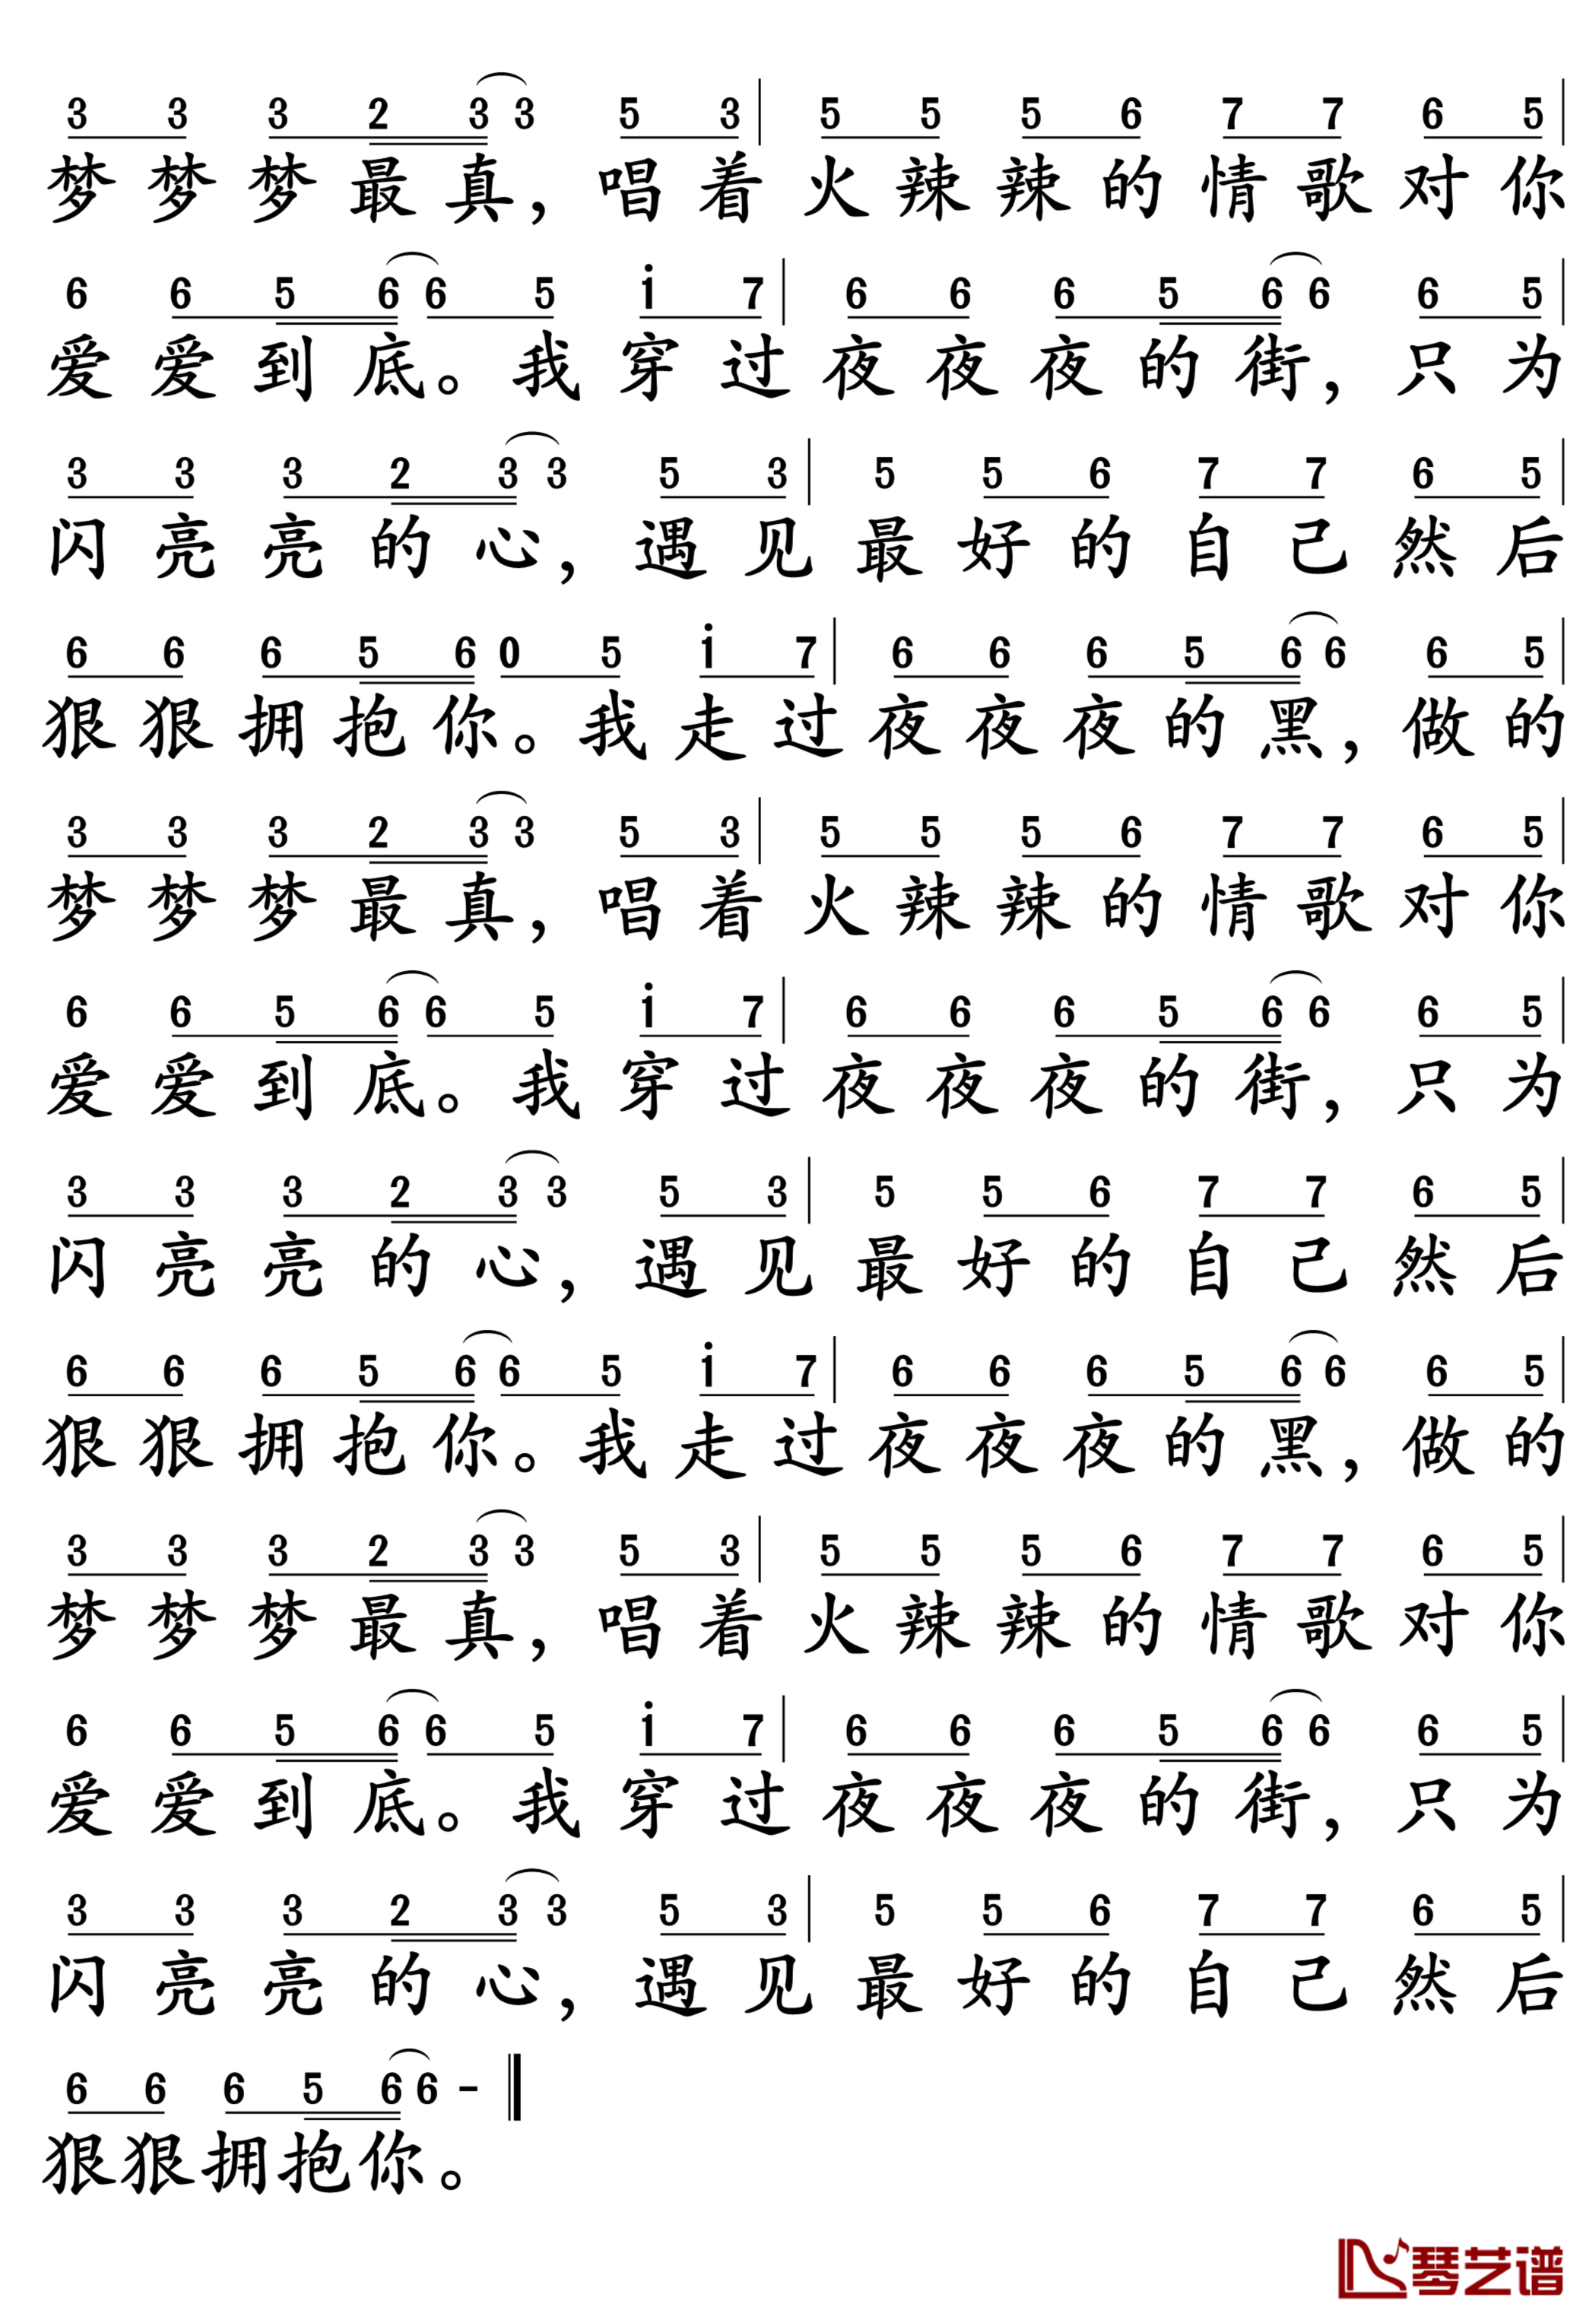 3 3 3 2 3 3 5 3 | 5 5 5 6 7 7 6 5 |
梦梦梦最真，唱着火辣辣的情歌对你
6 6 5 6 6 5 i 7 | 6 6 6 5 6 6 6 5 |
爱爱到底。我穿过夜夜夜的街，只为
3 3 3 2 3 3 5 3 | 5 5 6 7 7 6 5 |
闪亮亮的心，遇见最好的自己然后
6 6 6 5 6 0 5 i 7 | 6 6 6 5 6 6 6 5 |
狠狠拥抱你。我走过夜夜夜的黑，做的
3 3 3 2 3 3 5 3 | 5 5 5 6 7 7 6 5 |
梦梦梦最真，唱着火辣辣的情歌对你
6 6 5 6 6 5 i 7 | 6 6 6 5 6 6 6 5 |
爱爱到底。我穿过夜夜夜的街，只为
3 3 3 2 3 3 5 3 | 5 5 6 7 7 6 5 |
闪亮亮的心，遇见最好的自己然后
6 6 6 5 6 6 5 i 7 | 6 6 6 5 6 6 6 5 |
狠狠拥抱你。我走过夜夜夜的黑，做的
3 3 3 2 3 3 5 3 | 5 5 5 6 7 7 6 5 |
梦梦梦最真，唱着火辣辣的情歌对你
6 6 5 6 6 5 i 7 | 6 6 6 5 6 6 6 5 |
爱爱到底。我穿过夜夜夜的街，只为
3 3 3 2 3 3 5 3 | 5 5 6 7 7 6 5 |
闪亮亮的心，遇见最好的自己然后
6 6 6 5 6 6 - ‖
狠狠拥抱你。
琴艺谱